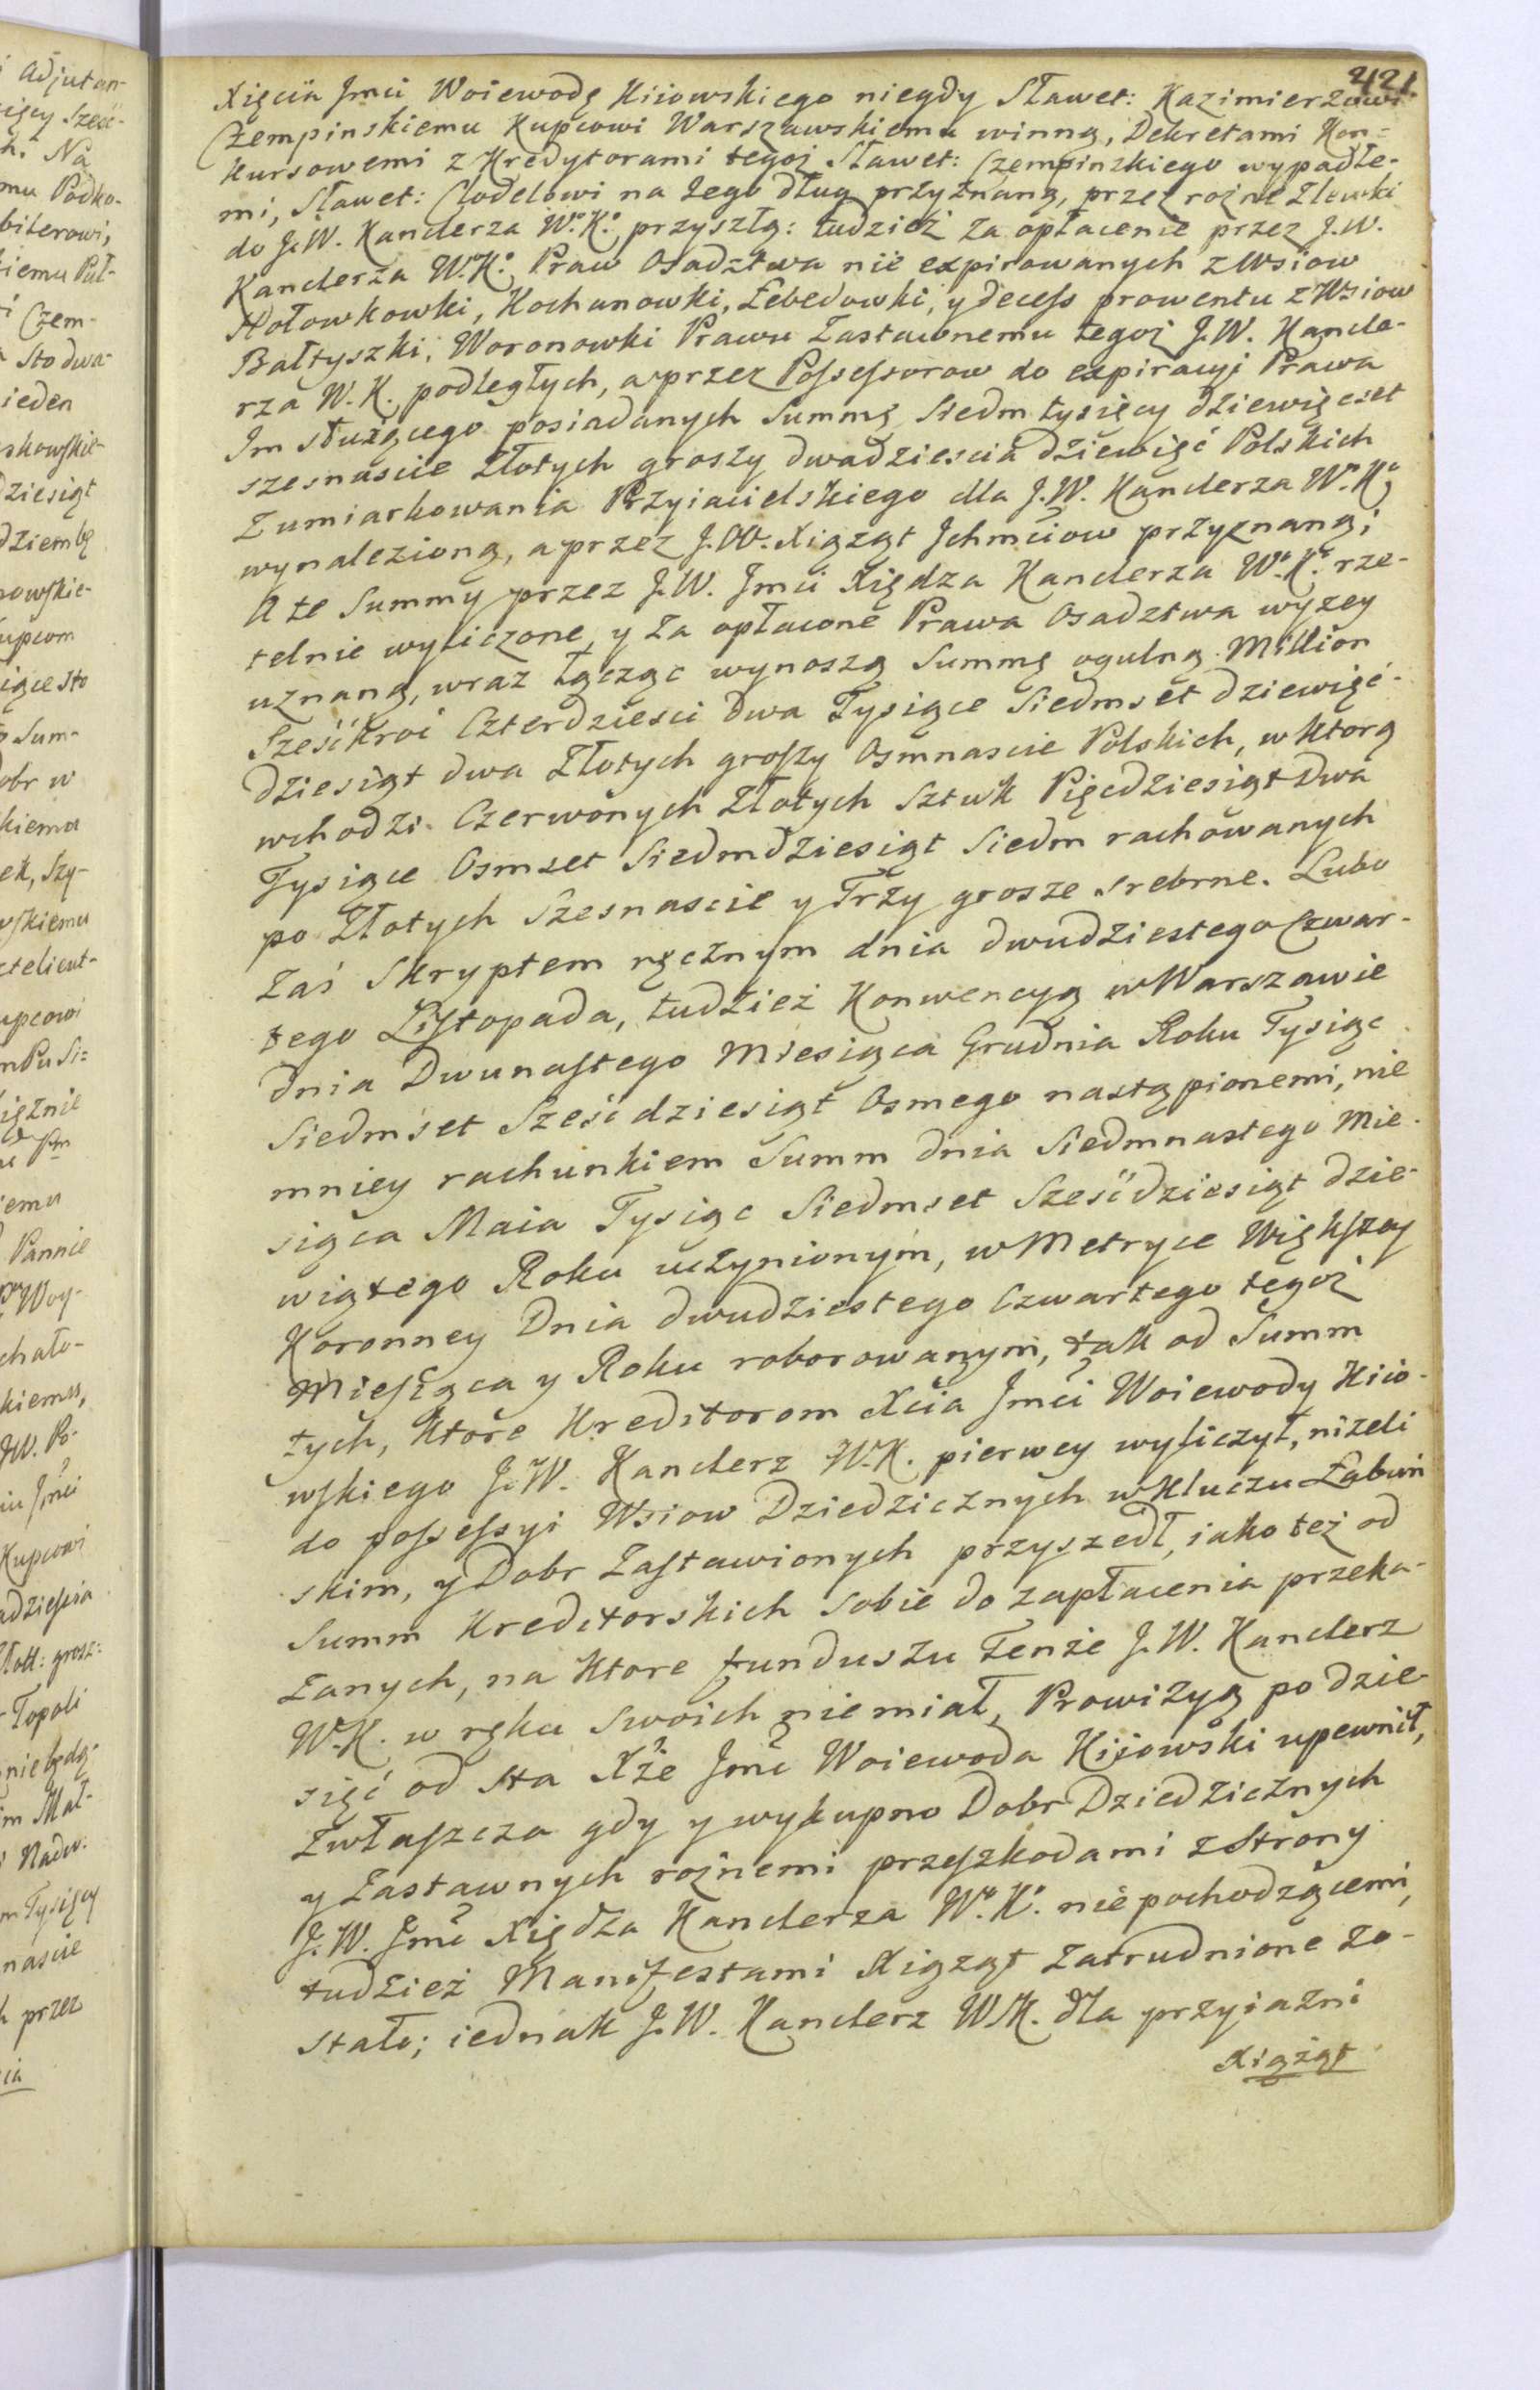 421.
Xięcia Jmci Woiewodę Kiiowskiego niegdy Sławet: Kazimierzowi
Czempinskiemu Kupcowi Warszawskiemu winną, Dekretami Kon=
kursowemi z Kredytorami tegoż Sławet: Czempinskiego wypadłe-
mi, Sławet: Clodelowi na Jego dług przyznaną, przez rożne Zlewki
do J.W. Kanclerza W°.K°. przyszłą: tudzież za opłacenie przez J.W.
Kanclerza W°.K°. Praw Osadztwa nie expirowanych z Wsiow
Hołowkowki, Kochanowki, Łebedowki, y decess prowentu z Wsiow
Bałtyszki, Woronowki Prawu Zastawnemu tegoż J.W. Kancle-
rza W.K. podległych, a przez Possessorow do expiracyi Prawa
Im służącego posiadanych Summę Siedm tysięcy dziewięcset
szesnascie Złotych groszy dwadziescia dziewięć Polskich
z umiarkowania Przyiacielskiego dla J.W. Kanclerza W°.K°
wynalezioną, a przez J.OO. Xiążąt Jchmciow przyznaną;
A te Summy przez J.W. Jmci Xiędza Kanclerza W°.K°. rze-
telnie wyliczone, y za opłacone Prawa Osadztwa wyzey
uznaną, wraz łącząc wynoszą Summę ogulną Million
Sześćkroć Czterdziesci dwa Tysiące Siedmset dziewięć-
dziesiąt dwa Złotych groszy Osmnascie Polskich, w ktorą
wchodzi Czerwonych Złotych Sztuk Pięcdziesiąt Dwa
Tysiące Osmset Siedmdziesiąt Siedm rachowanych
po Złotych Szesnascie y Trzy grosze srebrne. Lubo
zaś Skryptem ręcznym dnia dwudziestego Czwar-
tego Listopada, tudzież Konwencyą w Warszawie
dnia Dwunastego Miesiąca Grudnia Roku Tysiąc
Siedmset Sześćdziesiąt Osmego nastąpionemi, nie
mniey rachunkiem Summ dnia Siedmnastego Mie-
siąca Maia Tysiąc Siedmset Sześćdziesiąt dzie-
wiątego Roku uczynionym, w Metryce Większey
Koronney Dnia dwudziestego Czwartego tegoż
Miesiąca y Roku roborowanym, tak od Summ
tych, ktore Kreditorom Xcia Jmci Woiewody Kiio-
wskiego J.W. Kanclerz W.K. pierwey wyliczył, niżeli
do possessyi Wsiow Dziedzicznych w Kluczu Łabuń
skim, y Dobr Zastawionych przyszedł, iako też od
Summ Kreditorskich sobie do zapłacenia przeka-
zanych, na ktore funduszu tenże J.W. Kanclerz
W.K. w ręku swoich nie miał, Prowizyą po dzie-
sięć od sta Xże Jmć Woiewoda Kiiowski upewnił,
zwłaszcza gdy y wykupno Dobr Dziedzicznych
y Zastawnych rożnemi przeszkodami z strony
J.W. Jmć Xiędza Kanclerza W°.K°. nie pochodzącemi,
tudzież Manifestami Xiążąt zatrudnione zo-
stało; iednak J.W. Kanclerz W.K. dla przyiaźni
Xiążąt